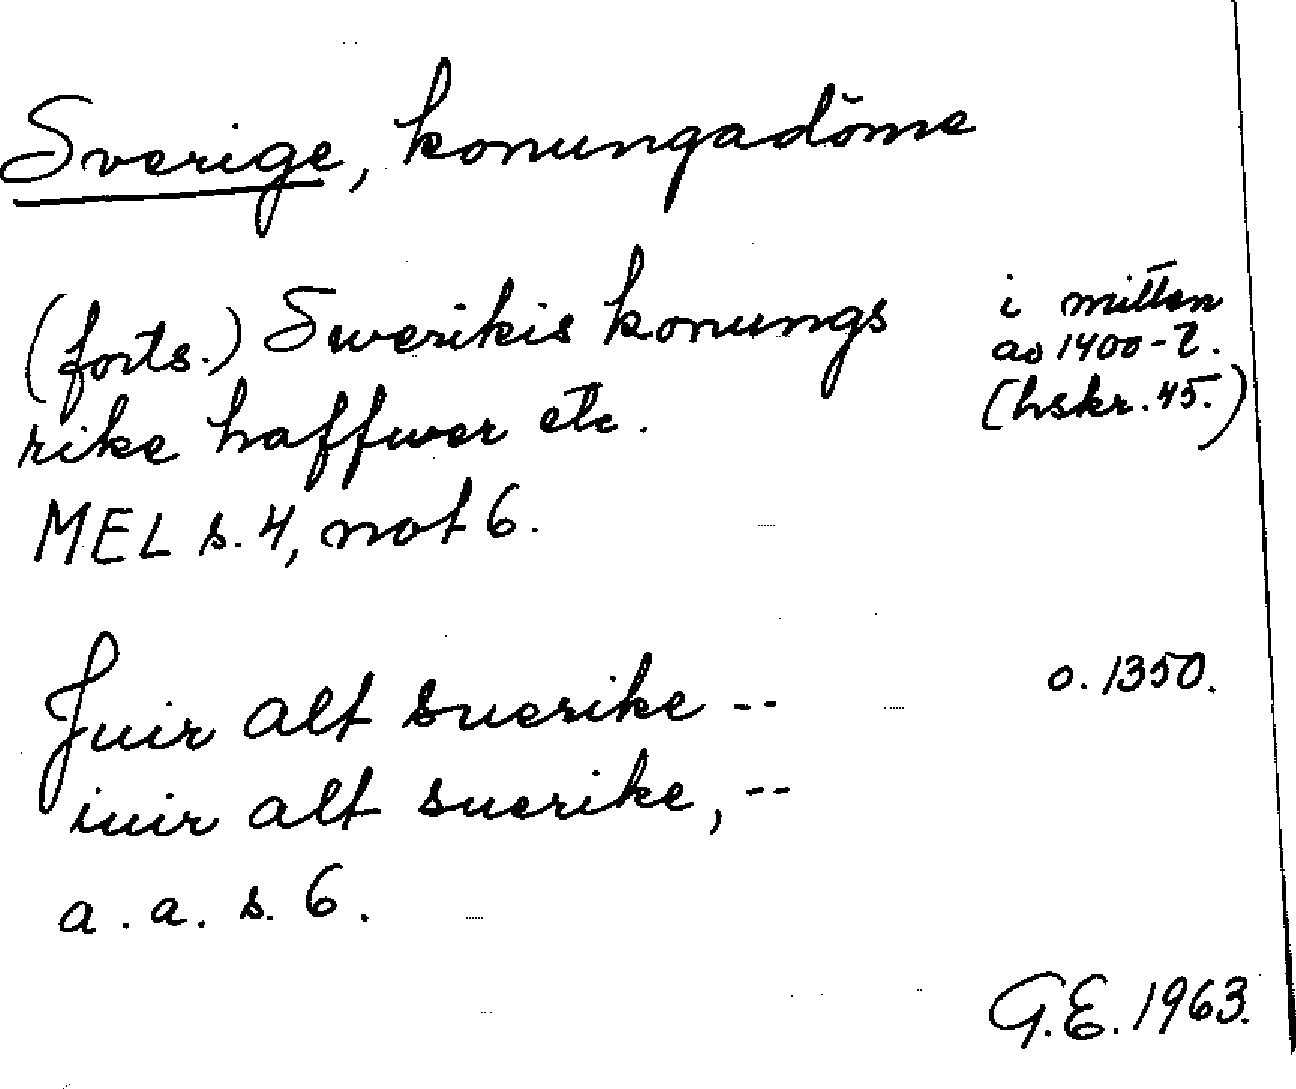 Sverige, konungadöme
(forts.) Swerikis konungs
rike haffwer etc.
MEL s. 4, not 6.
i mitten
av 1400-t.
(hskr. 45.)
Juir alt suerike --
iuir alt suerike, --
a. a. s. 6.
o. 1350.
G.E. 1963.